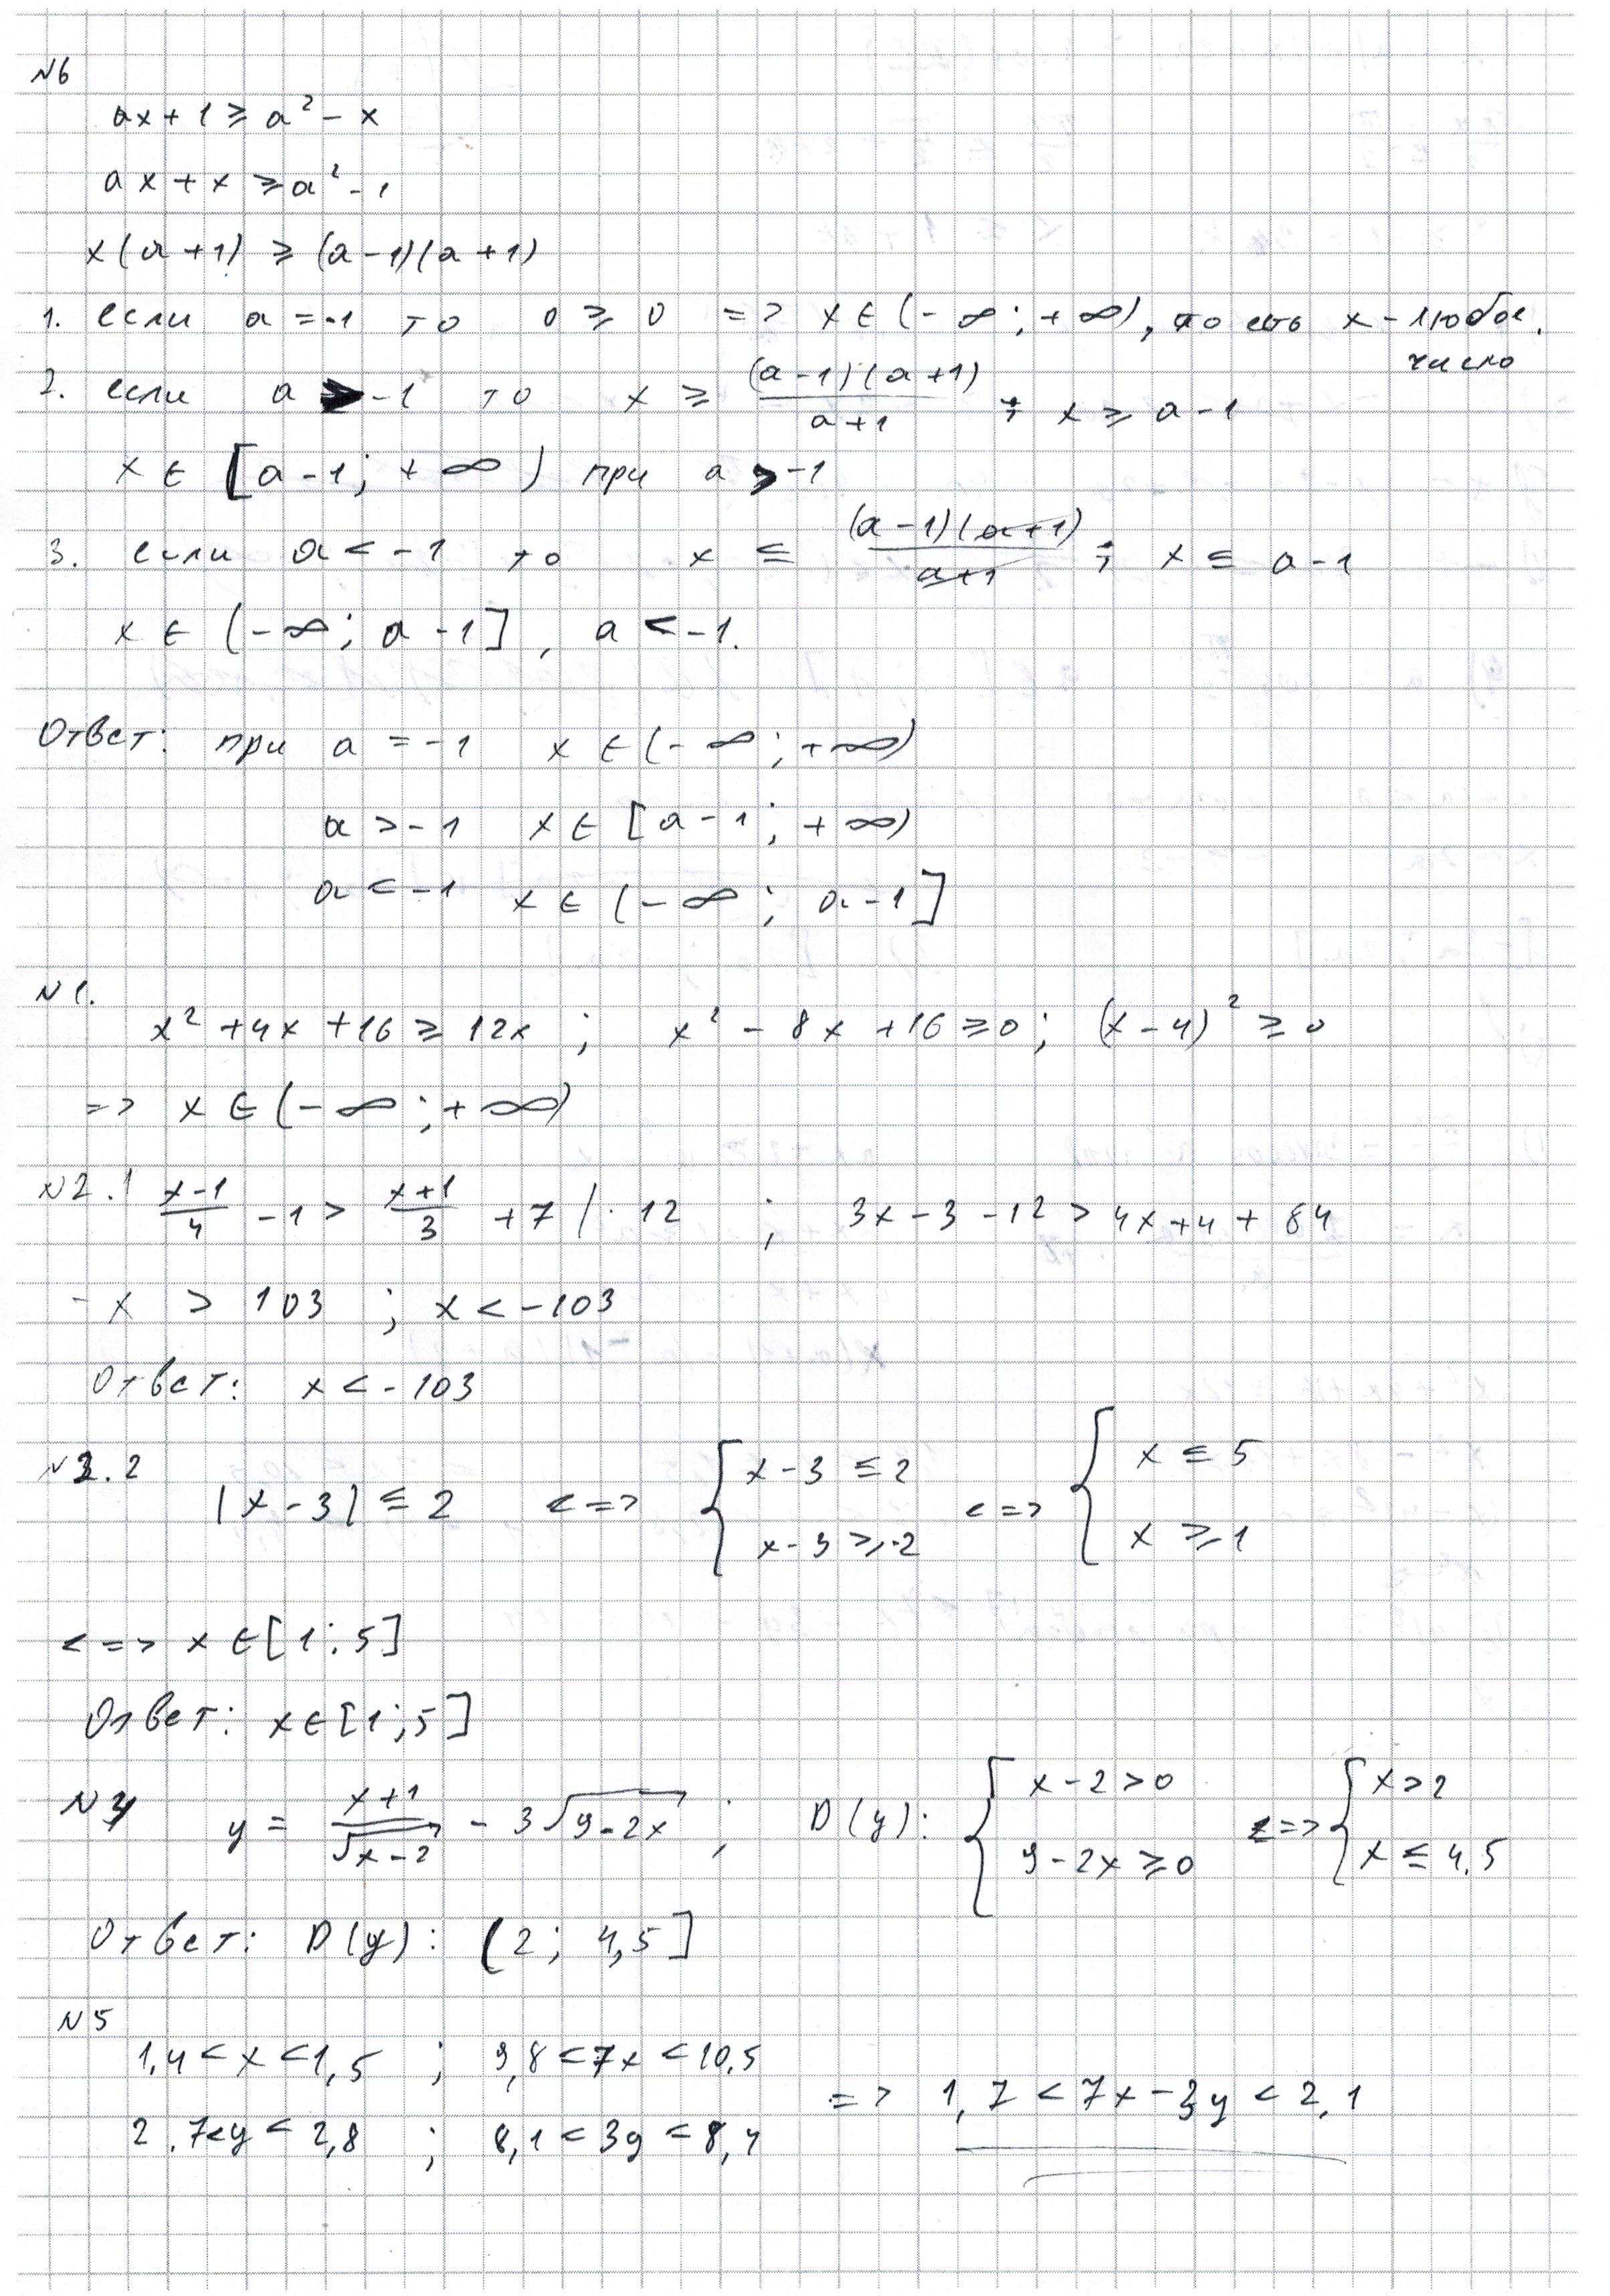 N6
ax + 1 ≥ a² - x
ax + x ≥ a² - 1
x(a+1) ≥ (a-1)(a+1)
1. если a = -1 то 0 ≥ 0 => x ∈ (-∞; +∞), то есть x - любое число
2. если a > -1 то x ≥ (a-1)(a+1)/(a+1) ; x ≥ a-1
x ∈ [a-1; +∞) при a > -1
3. если a < -1 то x ≤ (a-1)(a+1)/(a+1) ; x ≤ a-1
x ∈ (-∞; a-1], a < -1.
Ответ: при a = -1 x ∈ (-∞; +∞)
a > -1 x ∈ [a-1; +∞)
a < -1 x ∈ (-∞; a-1]
N1.
x² + 4x + 16 ≥ 12x ; x² - 8x + 16 ≥ 0 ; (x-4)² ≥ 0
=> x ∈ (-∞; +∞)
N2.1 (x-1)/4 - 1 > (x+1)/3 + 7 / · 12 ; 3x - 3 - 12 > 4x + 4 + 84
-x > 103 ; x < -103
Ответ: x < -103
|x-3| ≤ 2 <=> { x-3 ≤ 2 x-3 ≥ -2 <=> { x ≤ 5 x ≥ 1
<=> x ∈ [1; 5]
Ответ: x ∈ [1; 5]
N4 y = (x+1)/√(x-2) - 3√(9-2x) ; D(y): { x-2 > 0 9-2x ≥ 0 <=> { x > 2 x ≤ 4,5
Ответ: D(y): (2; 4,5]
N5
1,4 < x < 1,5 ; 9,8 < 7x < 10,5
=> 1,7 < 7x - 3y < 2,1
2,7 < y < 2,8 ; 8,1 < 3y < 8,4